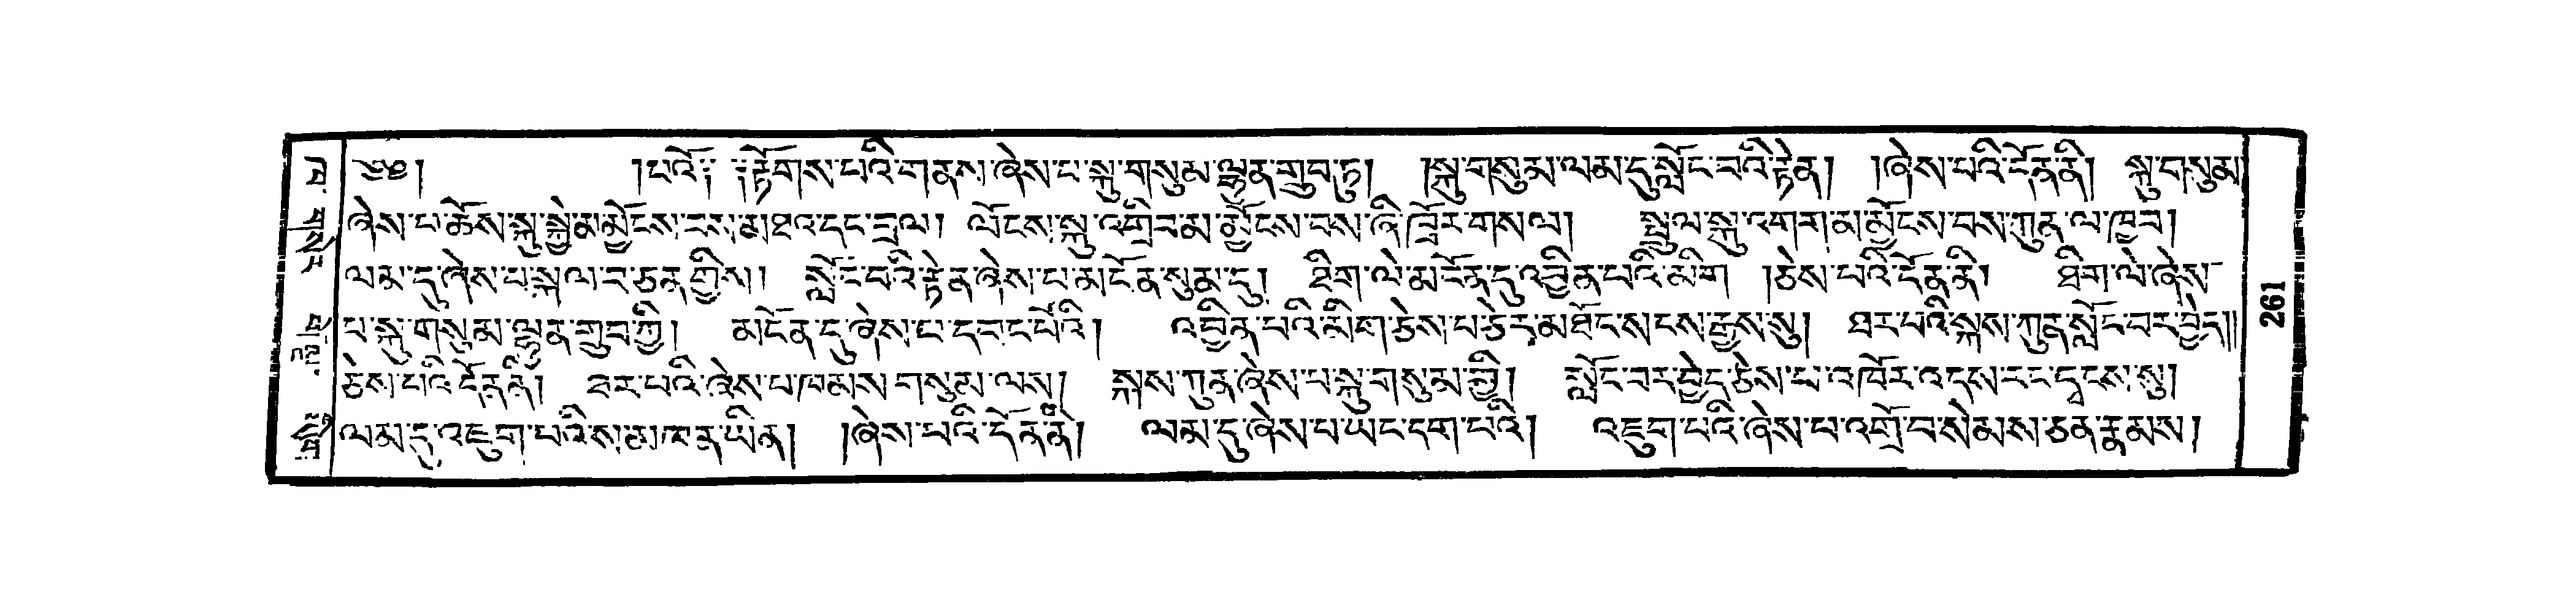 ༄༅། །པའོ༔ ༔རྟོགས་པའི་གནས་ཞེས་པ་སྐུ་གསུམ་ལྷུན་གྲུབ་ཏུ། །སྐུ་གསུམ་ལམ་དུ་སློང་བའི་རྟེན། །ཞེས་པའི་དོན་ནི། སྐུ་གསུམ
ཞེས་པ་ཆོས་སྐུ་སྐྱེ་མ་མྱོངས་པས་མཐའ་དང་བྲལ། ལོངས་སྐུ་འགྲིབ་མ་མྱོངས་པས་ཞི་ཁྲོར་གསལ། སྤྲུལ་སྐུ་འགག་མ་མྱོངས་པས་ཀུན་ལ་ཁྱབ།
ལམ་དུ་ཞེས་པ་སྐལ་བ་ཅན་གྱིས། སློང་བའི་རྟེན་ཞེས་པ་མངོན་སུམ་དུ། ཐིག་ལེ་མངོན་དུ་འབྱིན་པའི་མིག །ཅེས་པའི་དོན་ནི། ཐིག་ལེ་ཞེས་
པ་སྐུ་གསུམ་ལྷུན་གྲུབ་ཀྱི། མངོན་དུ་ཞེས་པ་དབང་པོའི། འབྱིན་པའི་མིག་ཅེས་པ་ཅེར་མཐོང་སངས་རྒྱས་སུ། ཐར་པའི་སྐས་ཀུན་སློང་བར་བྱེད༎
ཅེས་པའི་དོན་ནི། ཐར་པའི་ཞེས་པ་ཁམས་གསུམ་ལས། སྐས་ཀུན་ཞེས་པ་སྐུ་གསུམ་གྱི། སློང་བར་བྱེད་ཅེས་པ་འཁོར་འདས་རང་དྭངས་སུ།
ལམ་དུ་འཇུག་པའི་ས་མཁན་ཡིན། །ཞེས་པའི་དོན་ནི། ལམ་དུ་ཞེས་པ་ཡང་དག་པའི། འཇུག་པའི་ཞེས་པ་འགྲོ་བ་སེམས་ཅན་རྣམས།
261